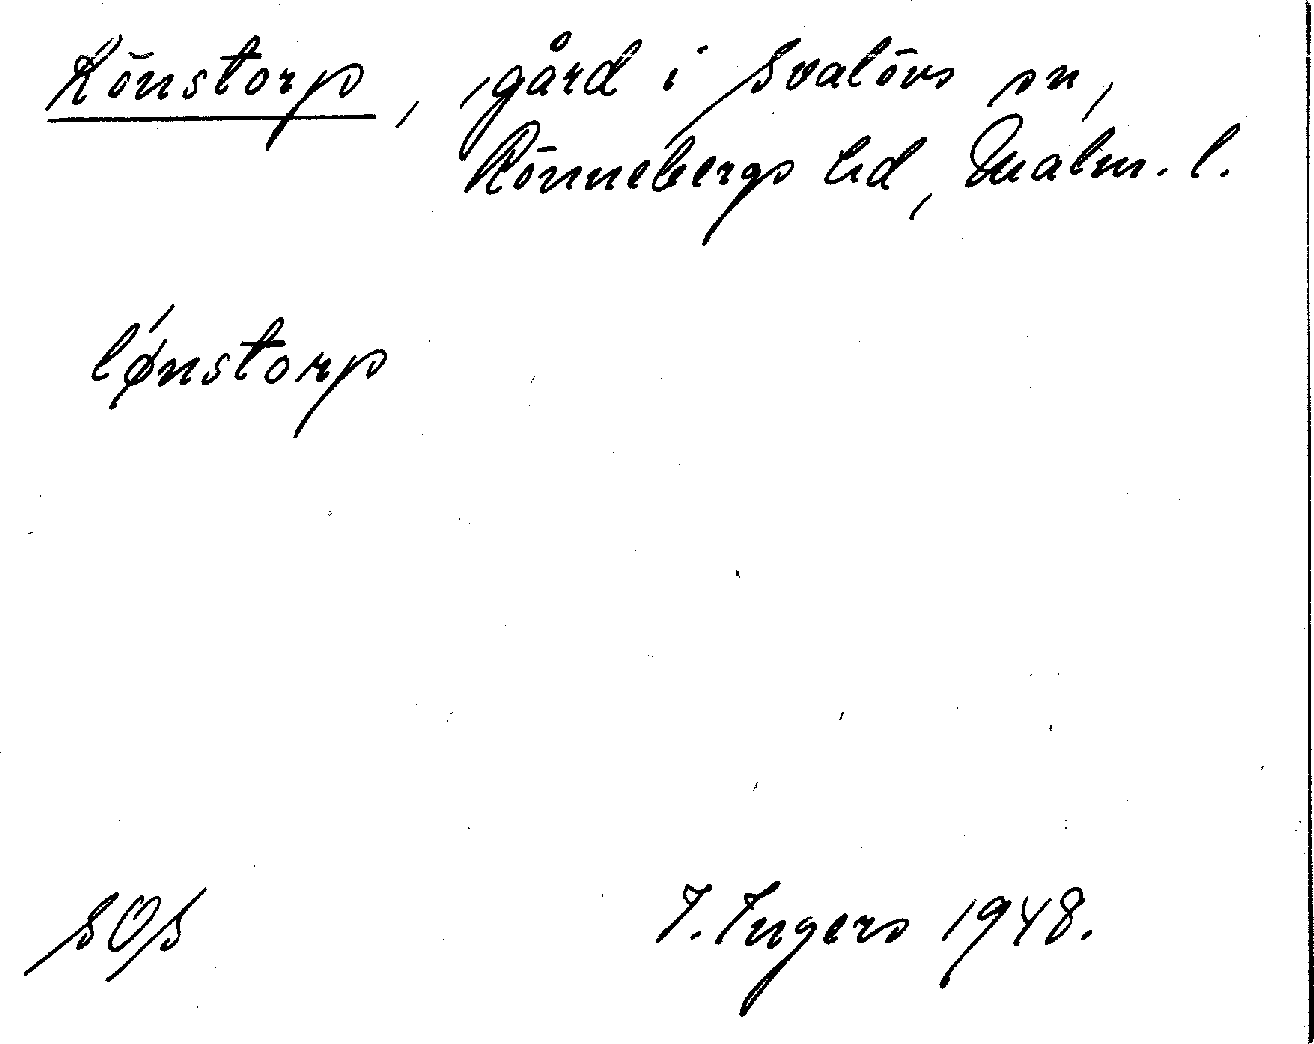 Rönstorp, gård i Svalövs sn,
Rönnebergs hd, Malm. l.
lǿnstorp
SOS I. Ingers 1948.